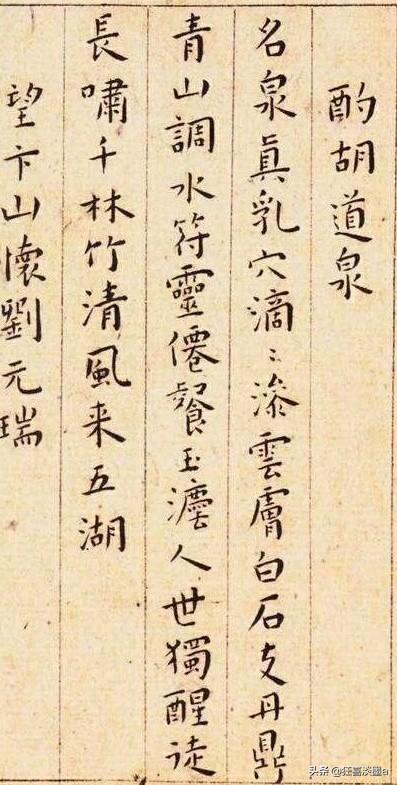 酌胡道泉
名泉眞乳穴滴〻滲雲膚白石支丹鼎
青山調水符靈僊餐玉灋人世獨醒徒
長嘯千林竹清風来五湖
望卞山懷劉元瑞
头条 @狂喜淡墨a